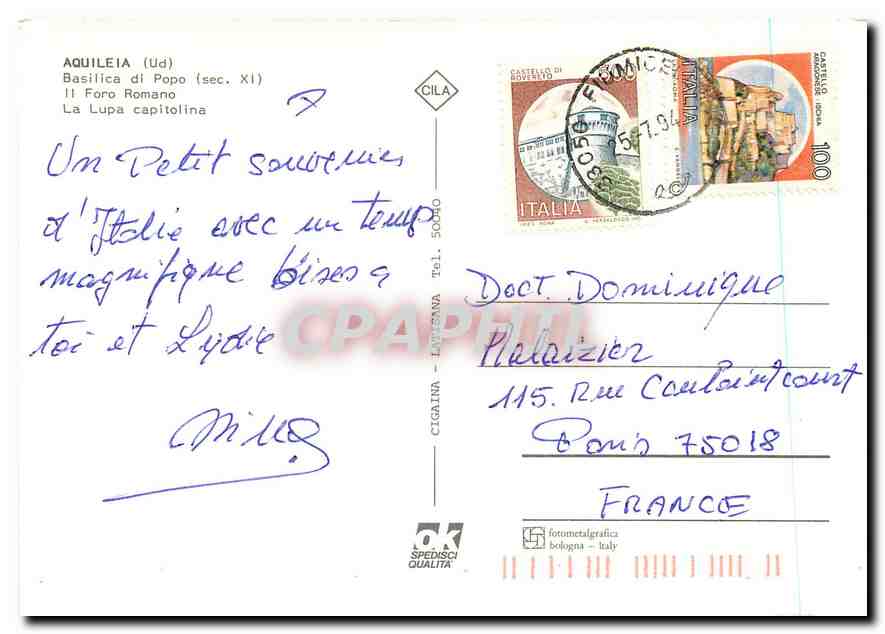 AQUILEIA (Ud)
Basilica di Popo (sec. XI)
Il Foro Romano
La Lupa capitolina
CILA
Un Petit souvenir
d'Italie avec un temps
magnifique bises a
toi et Lydie
CASTELLO DI
ROVERETO
ITALIA
CASTELLO
ARAGONESE - ISCHIA
ITALIA
100
33050 FIUMICE
5.7.94
CIGAINA - LATISANA Tel. 50040
Doct. Dominique
Malaizier
115. Rue Caulaincourt
Paris 75018
FRANCE
CPAPHIL
ok
SPEDISCI
QUALITÀ
fotometalgrafica
bologna - Italy